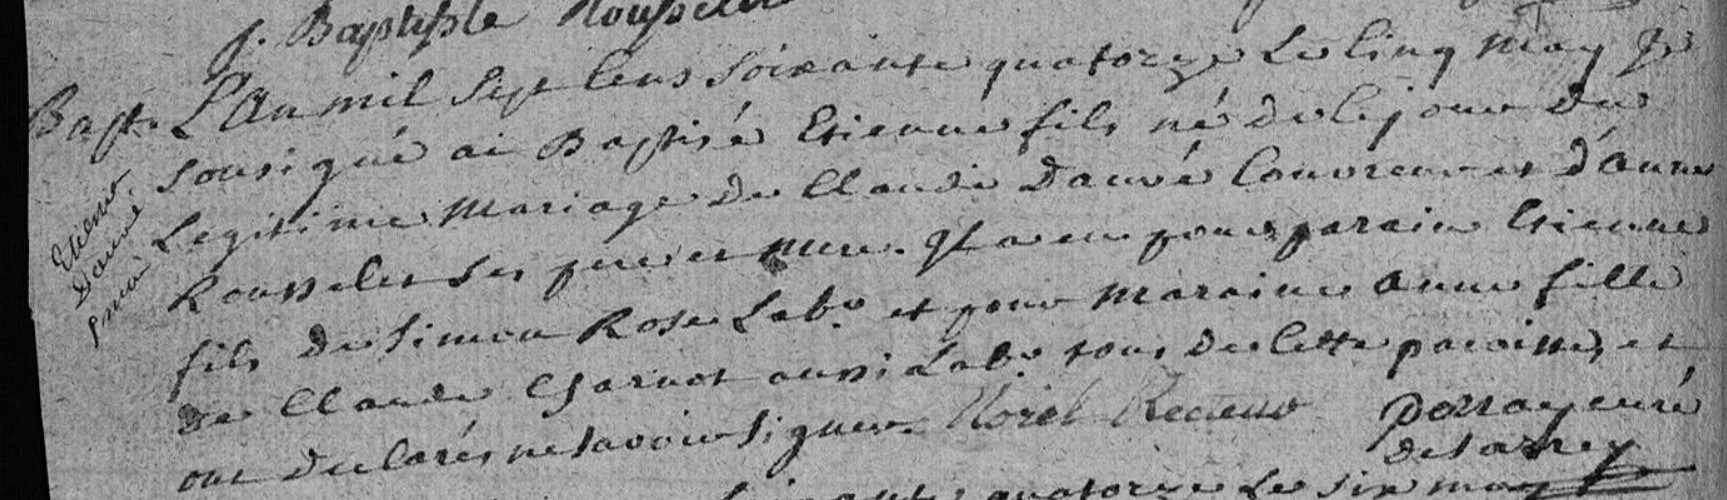 J. Baptiste Rousselet
Bapt. L'An mil Sept Cens Soixante quatorze Le Cinq May Je
Etienne
Dauvé
Sousigné ai Baptisé Etienne fils né de Ce jour du
Legitime Mariage de Claude Dauvé Couvreur et d'anne
Rousselet Ses pere et mere. Il a eu pour parain Etienne
fils de Simon Rose Labr. et pour Maraine anne fille
de Claude Charnot aussi Labr. tous de Cette paroisse, et
ont declarés ne Savoir Signer. Morel Recteur
curé
de Sarrey
Soixante quatorze Le Six may